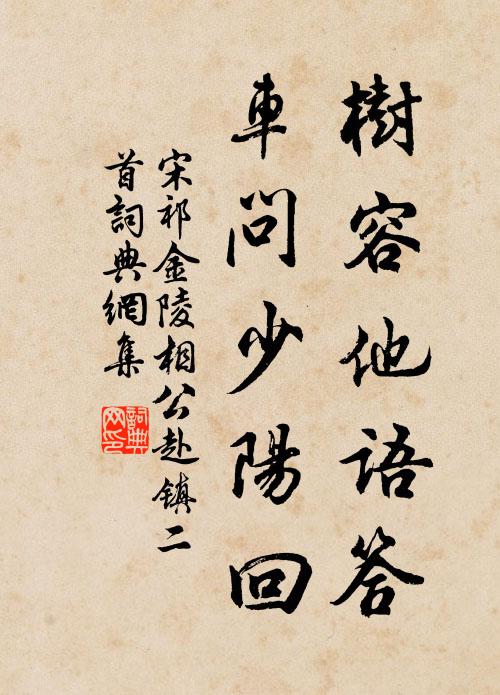 樹容他語答
車問少陽回
宋祁金陵相公赴鎮二
首詞典網集
詞典
网印